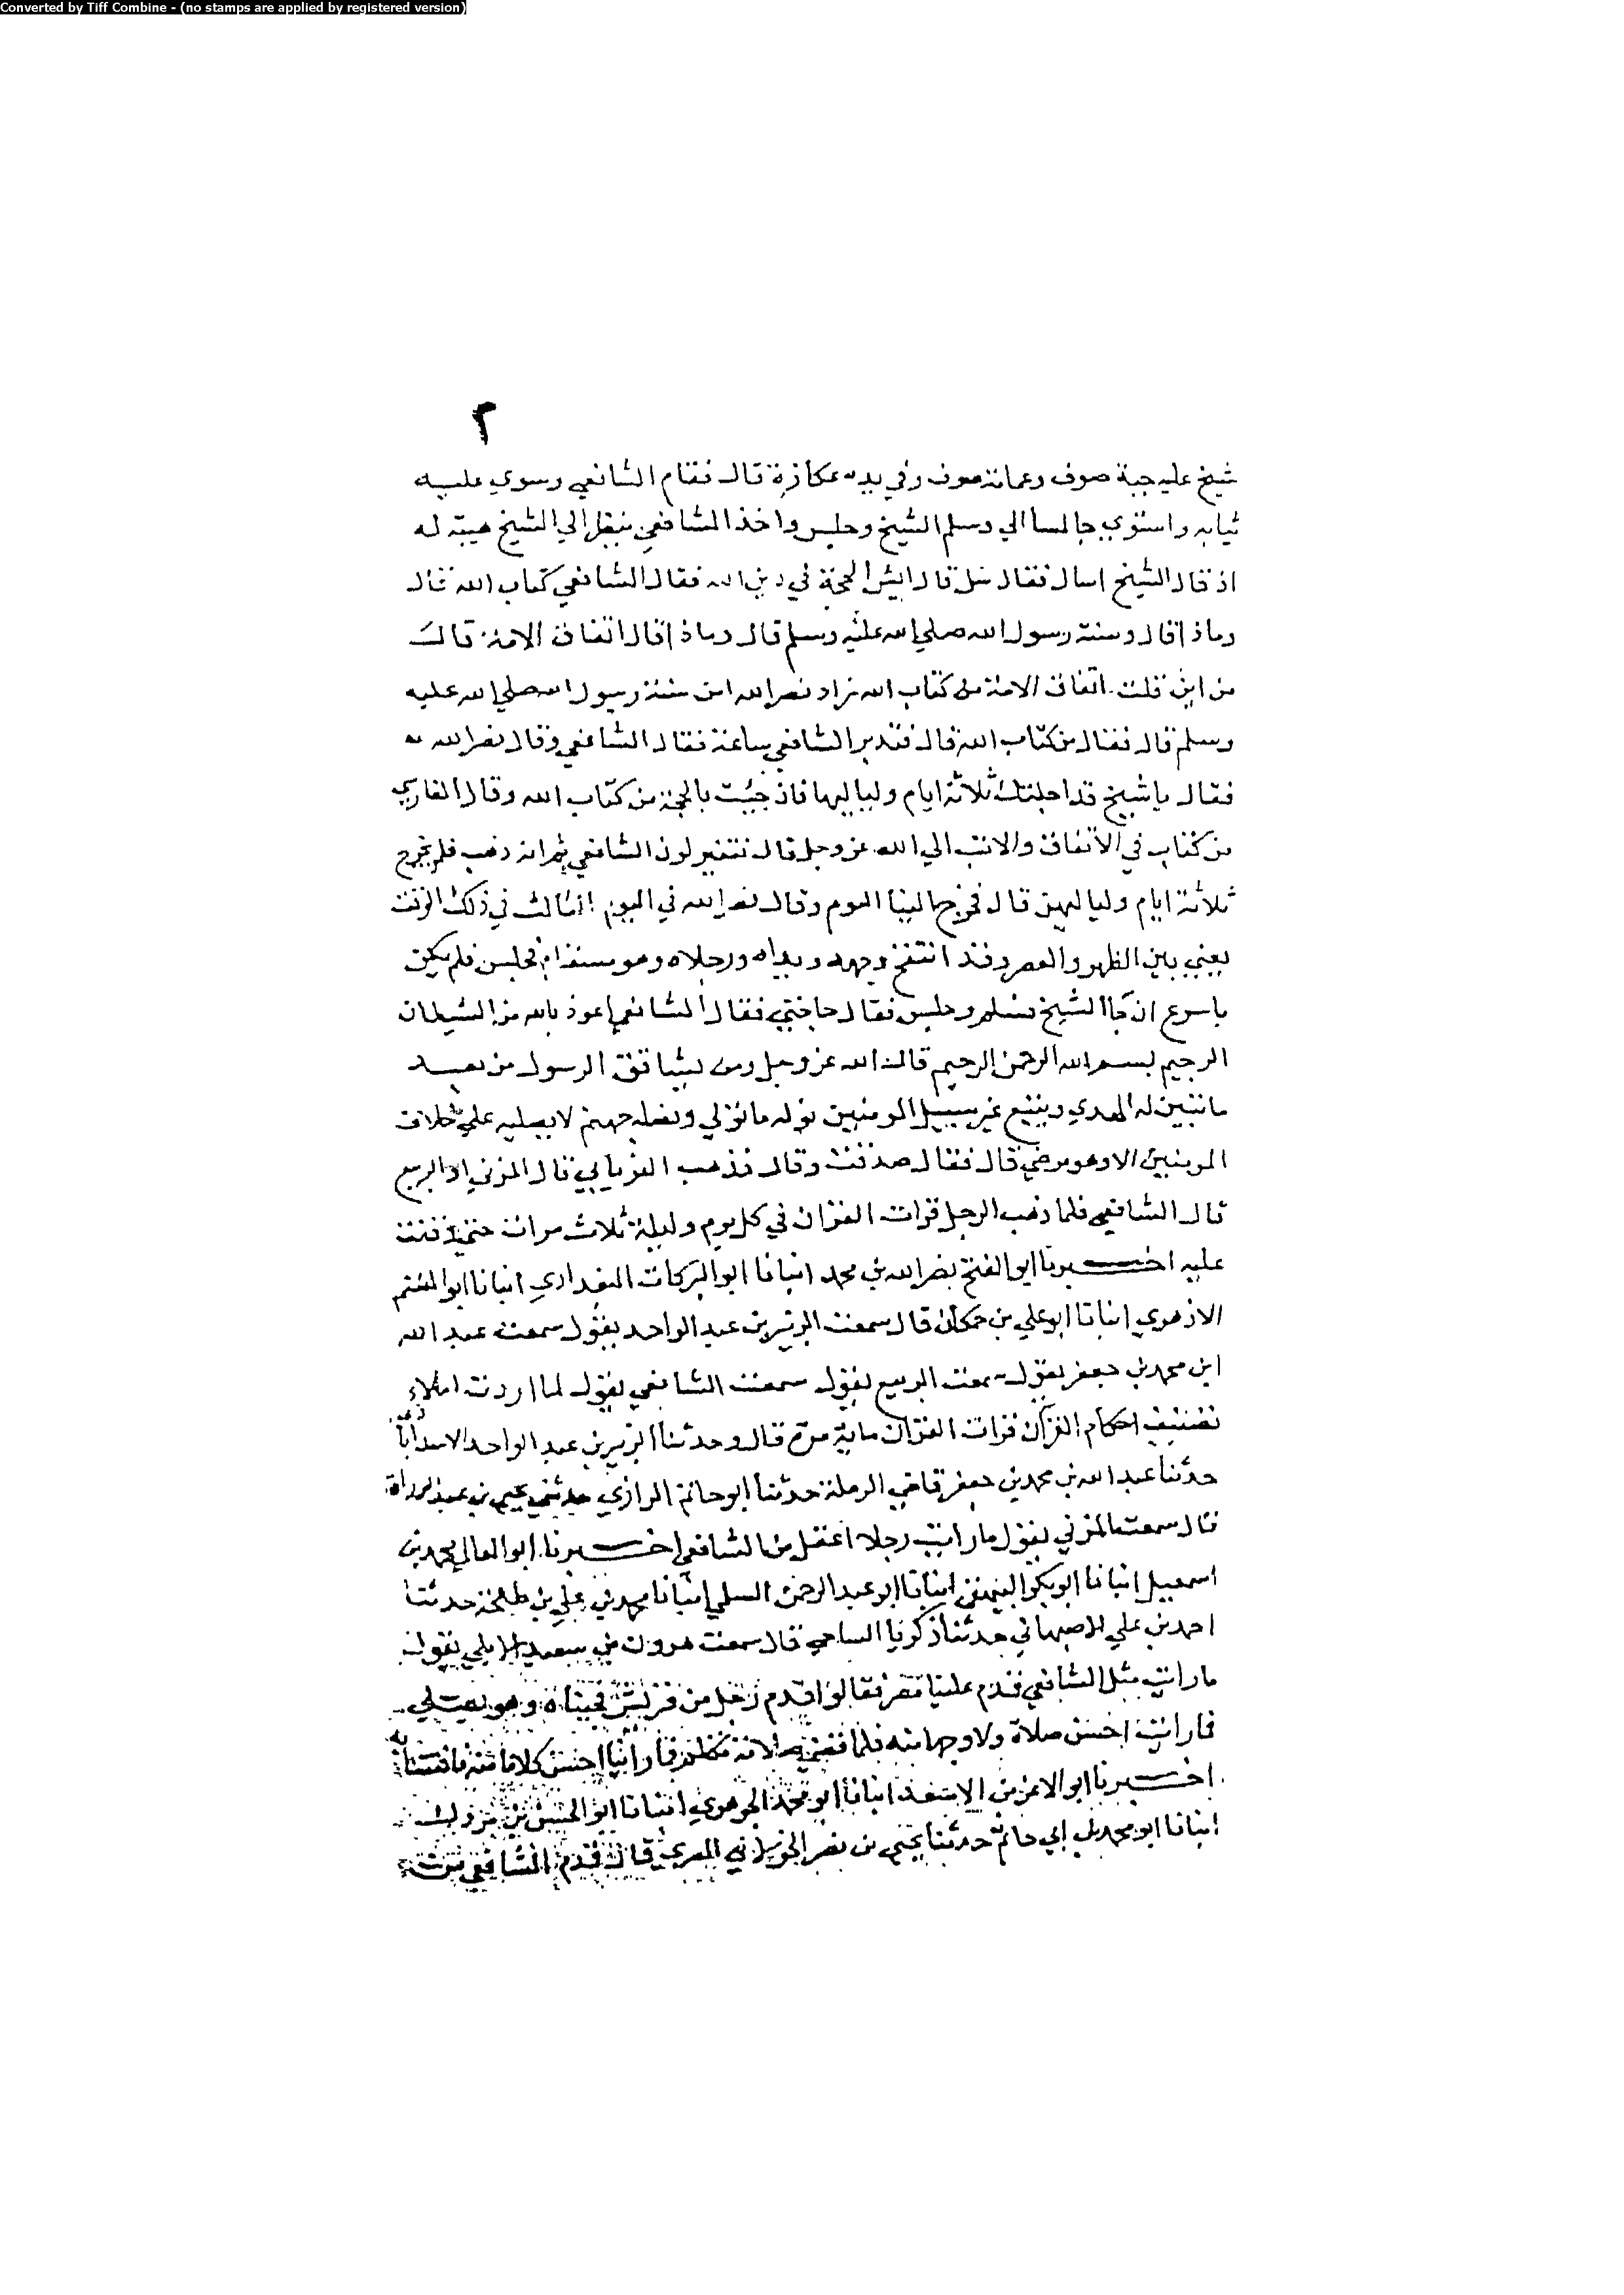 Converted by Tiff Combine - (no stamps are applied by registered version)
٢
شيخ عليه جبة صوف وعمامة صوف وفي يده عكازة قال فقام الشافعي وسوي عليه
ثيابه واستوي جالسا الي وسلم الشيخ وجلس واخذ الشافعي ينظر الي الشيخ هيبة له
اذ قال الشيخ اسال فقال سل قال ايش الحجة في دين الله فقال الشافعي كتاب الله قال
وماذا قال وسنة رسول الله صلي الله عليه وسلم قال وماذا قال اتفاق الامة قال
من اين قلت اتفاق الامة من كتاب الله زاد نصر الله من سنة رسول الله صلي الله عليه
وسلم قال فقال من كتاب الله قال فتدبر الشافعي ساعة فقال الشافعي وقال نصر الله
فقال يا شيخ قد اجلتك ثلاثة ايام ولياليها فان جيت بالحجة من كتاب الله وقال الفارسي
من كتاب في الاتفاق والا تتب الي الله عز وجل قال فتغير لون الشافعي ثم انه ذهب فلم يخرج
ثلاثة ايام ولياليهن قال فخرج الينا اليوم وقال نصر الله في اليوم الثالث في ذلك الوقت
يعني بين الظهر والعصر وقد انتفخ وجهه ويداه ورجلاه وهو مسقام فجلس فلم يكن
باسرع ان جا الشيخ فسلم وجلس فقال حاجتي فقال الشافعي اعوذ بالله من الشيطان
الرجيم بسم الله الرحمن الرحيم قال الله عز وجل ومن يشاقق الرسول من بعد
ما تبين له الهدي ويتبع غير سبيل المومنين نوله ما تولي ونصله جهنم لا يصليه علي خلاف
المومنين الا وهو فرض قال فقال صدقت وقال فذهب الفريابي قال المزني او الربيع
قال الشافعي فلما ذهب الرجل قرات القران في كل يوم وليلة ثلاث مرات حتي وقفت
عليه اخبرنا ابو الفتح نصر الله بن محمد انبانا ابو البركات البغدادي انبانا ابو القسم
الازهري انبانا ابو علي بن حمكان قال سمعت الزبير بن عبد الواحد يقول سمعت عبد الله
ابن محمد بن جعفر يقول سمعت الربيع يقول سمعت الشافعي يقول لما اردت املاء
تصنيف احكام القران قرات القران ماية مرة قال وحدثنا الزبير بن عبد الواحد الاسداباذي
حدثنا عبد الله بن محمد بن جعفر قاضي الرملة حدثنا ابو حاتم الرازي حدثني يحيي بن
قال سمعت المزني يقول ما رايت رجلا اعقل من الشافعي اخبرنا ابو المعالي محمد بن
اسمعيل انبانا ابو بكر البيهقي انبانا ابو عبد الرحمن السلمي انبانا محمد بن علي بن طلحة حدثنا
احمد بن علي الاصبهاني حدثنا زكريا الساجي قال سمعت هرون بن سعيد الايلي يقول
ما رايت مثل الشافعي قدم علينا مصر فقالوا قدم رجل من قريش فجيناه وهو يصلي
فما رايت احسن صلاة ولا وجها منه فلما قضي صلاته تكلم فما راينا احسن كلاما منه فافتتنا به
اخبرنا ابو الاعز بن الاسعد انبانا ابو محمد الجوهري انبانا ابو الحسن بن مردك
انبانا ابو محمد بن ابي حاتم حدثنا يحيي بن نصر الخولاني المصري قال قدم الشافعي سنة